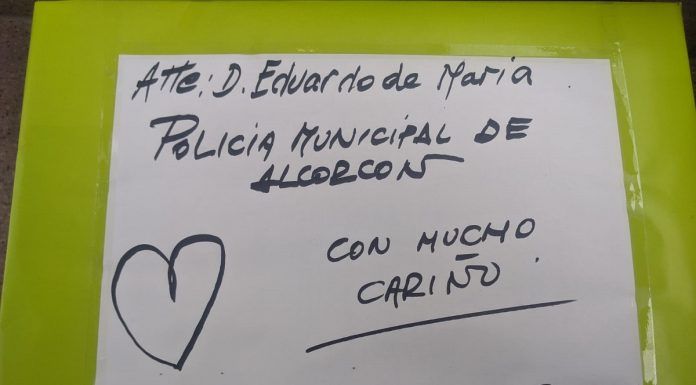 Atte: D. Eduardo de Maria
POLICIA MUNICIPAL DE
ALCORCON
CON MUCHO
CARIÑO.